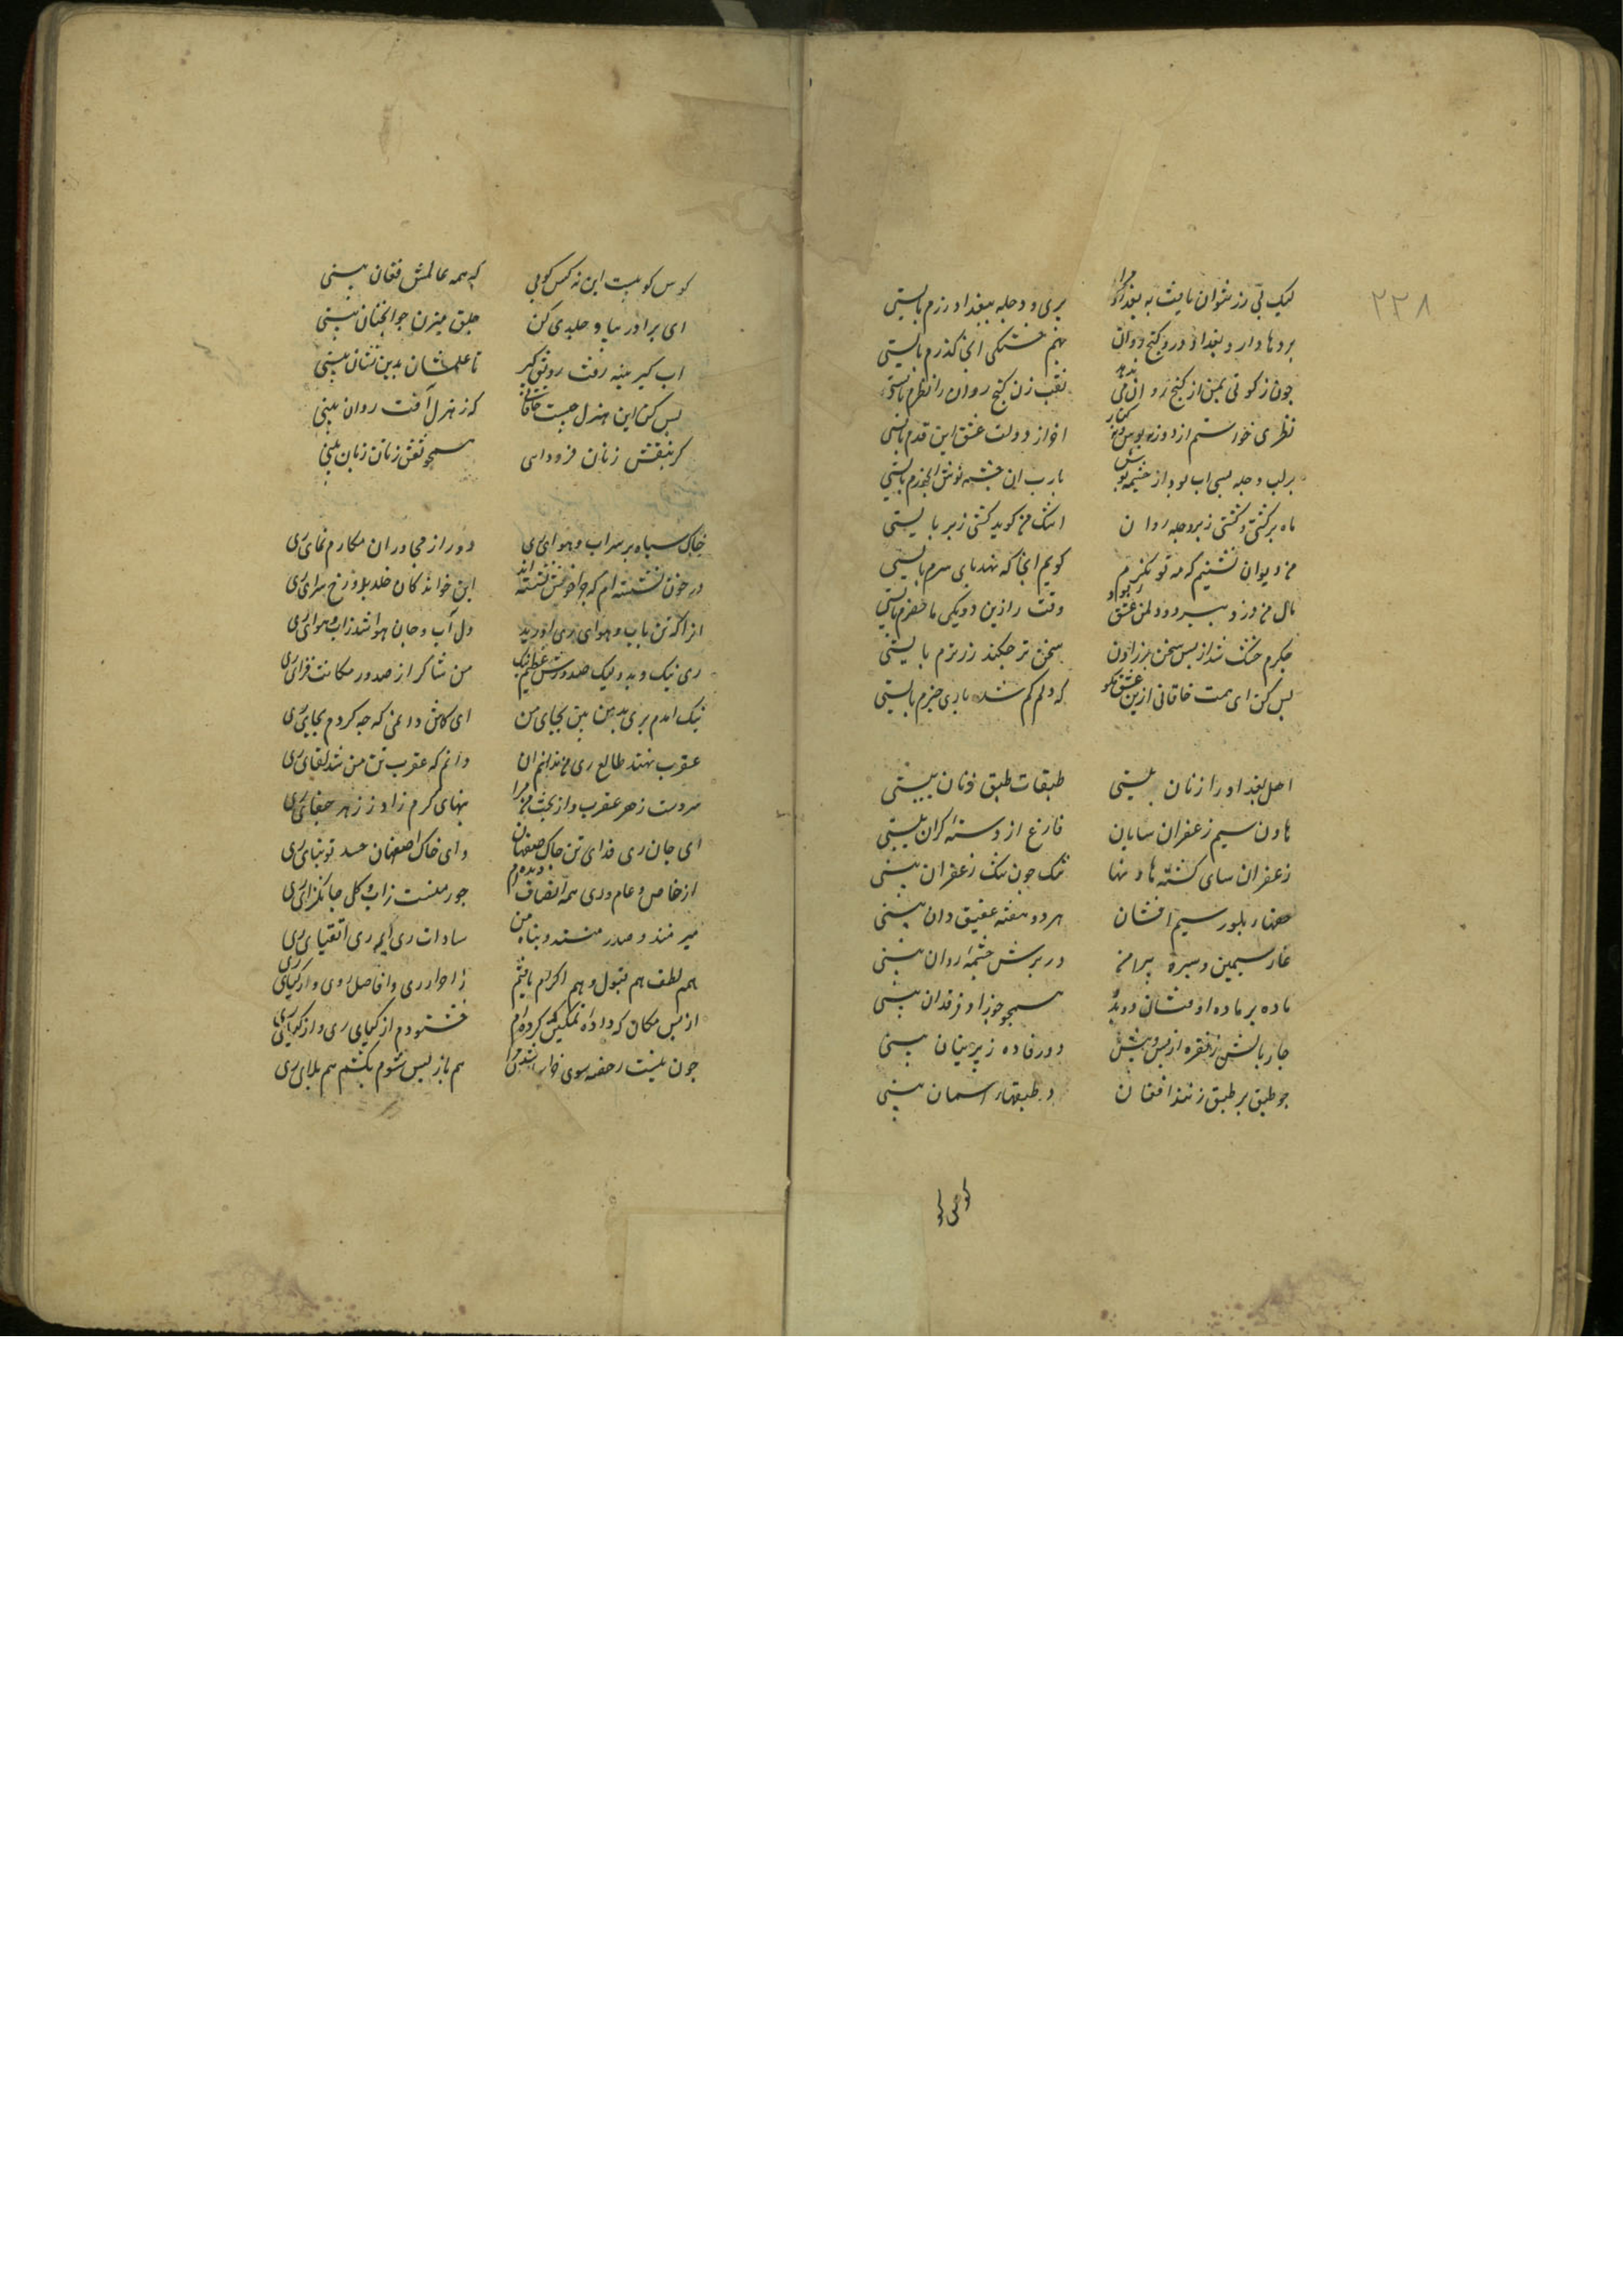 ۲۲۸
لیک بی زر نتوان یافت به بغداد مرا بری و دجله ببغداد زرم بایستی
بردها دارد بغداد و درو گنج روان نهم خستگی انجا گذرم بایستی
چون زکوتی بمن از گنج روان می ندهد نقب زن گنج روان را نظرم بایستی
نظری خواستم از دور نه بوس و کنار اخر از دولت عشق این قدرم بایستی
بر لب دجله بسی اب بود از چشمه نوش یارب این چشمه نوش ابخورم بایستی
ماه بر کشتی و کشتی زبر دجله روان اشک من گوید کشتی زبر بایستی
من دیوانه نشینم که مه نو نگرم گویم انجا که نهد پای سرم بایستی
مال من دزد ببرد و دل من عشق ربود وقت را زین دو یکی ماحضرم بایستی
جگرم خشک شد از بس سخن تر زادن سخن تر چکند زر ترم بایستی
بس کن ای همت خاقانی ازین عشق مگو که دلم گم شد باری خبرم بایستی
اهل بغداد را زنان بینی طبقات طبق زنان بینی
هاون سیم زعفران سایان فارغ از دسته گران بینی
زعفران سای گشته هاونها تنگ چون تنگ زعفران بینی
حقهاء بلور سیم افشان هر دو هفته عقیق دان بینی
غار سیمین و سبزه پیرامن در برش چشمه روان بینی
ماده بر ماده اوفتان دو بدو همچو جوزا و فرقدان بینی
چار بالش ز نقره از پس و پیش دو رفاده ز پرنیان بینی
چو طبق بر طبق زنند افغان در طبقهاء اسمان بینی
کوس کوبیست این نه کس کوبی که همه عالمش فغان بینی
ای برادر بیا و جلدی کن جلق میزن جو انچنان بینی
اب کیر مینه رفت رونق کیر تا علمشان بدین نشان بینی
بس کن این هزل چیست خاقانی که ز هزل آفت روان بینی
گر بنقش زنان فرودایی همچو نقش زنان زیان بینی
خاک سیاه بر سر اب و هوای ری دور از مجاوران مکارم نمای ری
در خون نشسته ام که چرا خوش نشسته اند این خواندگان خلد بدوزخ سرای ری
انرا که تن باب و هوای ری اورید دل آب و جان هوا شد زاب و هوای ری
ری نیک و بد ولیک صدورش عظیم نیک من شاکر از صدور مکانت فزای ری
نیک امدم بری بد من بین بجای من ای کاش دانمی که چه کردم بجای ری
عقرب نهند طالع ری من ندانم ان دانم که عقرب تن من شد لقای ری
سردست زهر عقرب و از بخت من مرا تبهای گرم زاد ز زهر جفای ری
ای جان ری فدای تن خاک صفهان وای خاک اصفهان حسد توتیای ری
از خاص و عام وری همه انصاف دیده ام جور منست زاب و گل جانگزای ری
میر منند و صدر منند و پناه من سادات ری ایمه ری اتقیای ری
هم لطف هم قبول و هم اکرام یافتم ز احرار ری و افاضل ری و از کیای ری
از بس مکان که داده و تمکین که کرده ام خشنودم از کیای ری و از کیای ری
چون نیست رخصه سوی خراسان شدن مرا هم باز پس شوم نکشم هم بلای ری
کوس کو